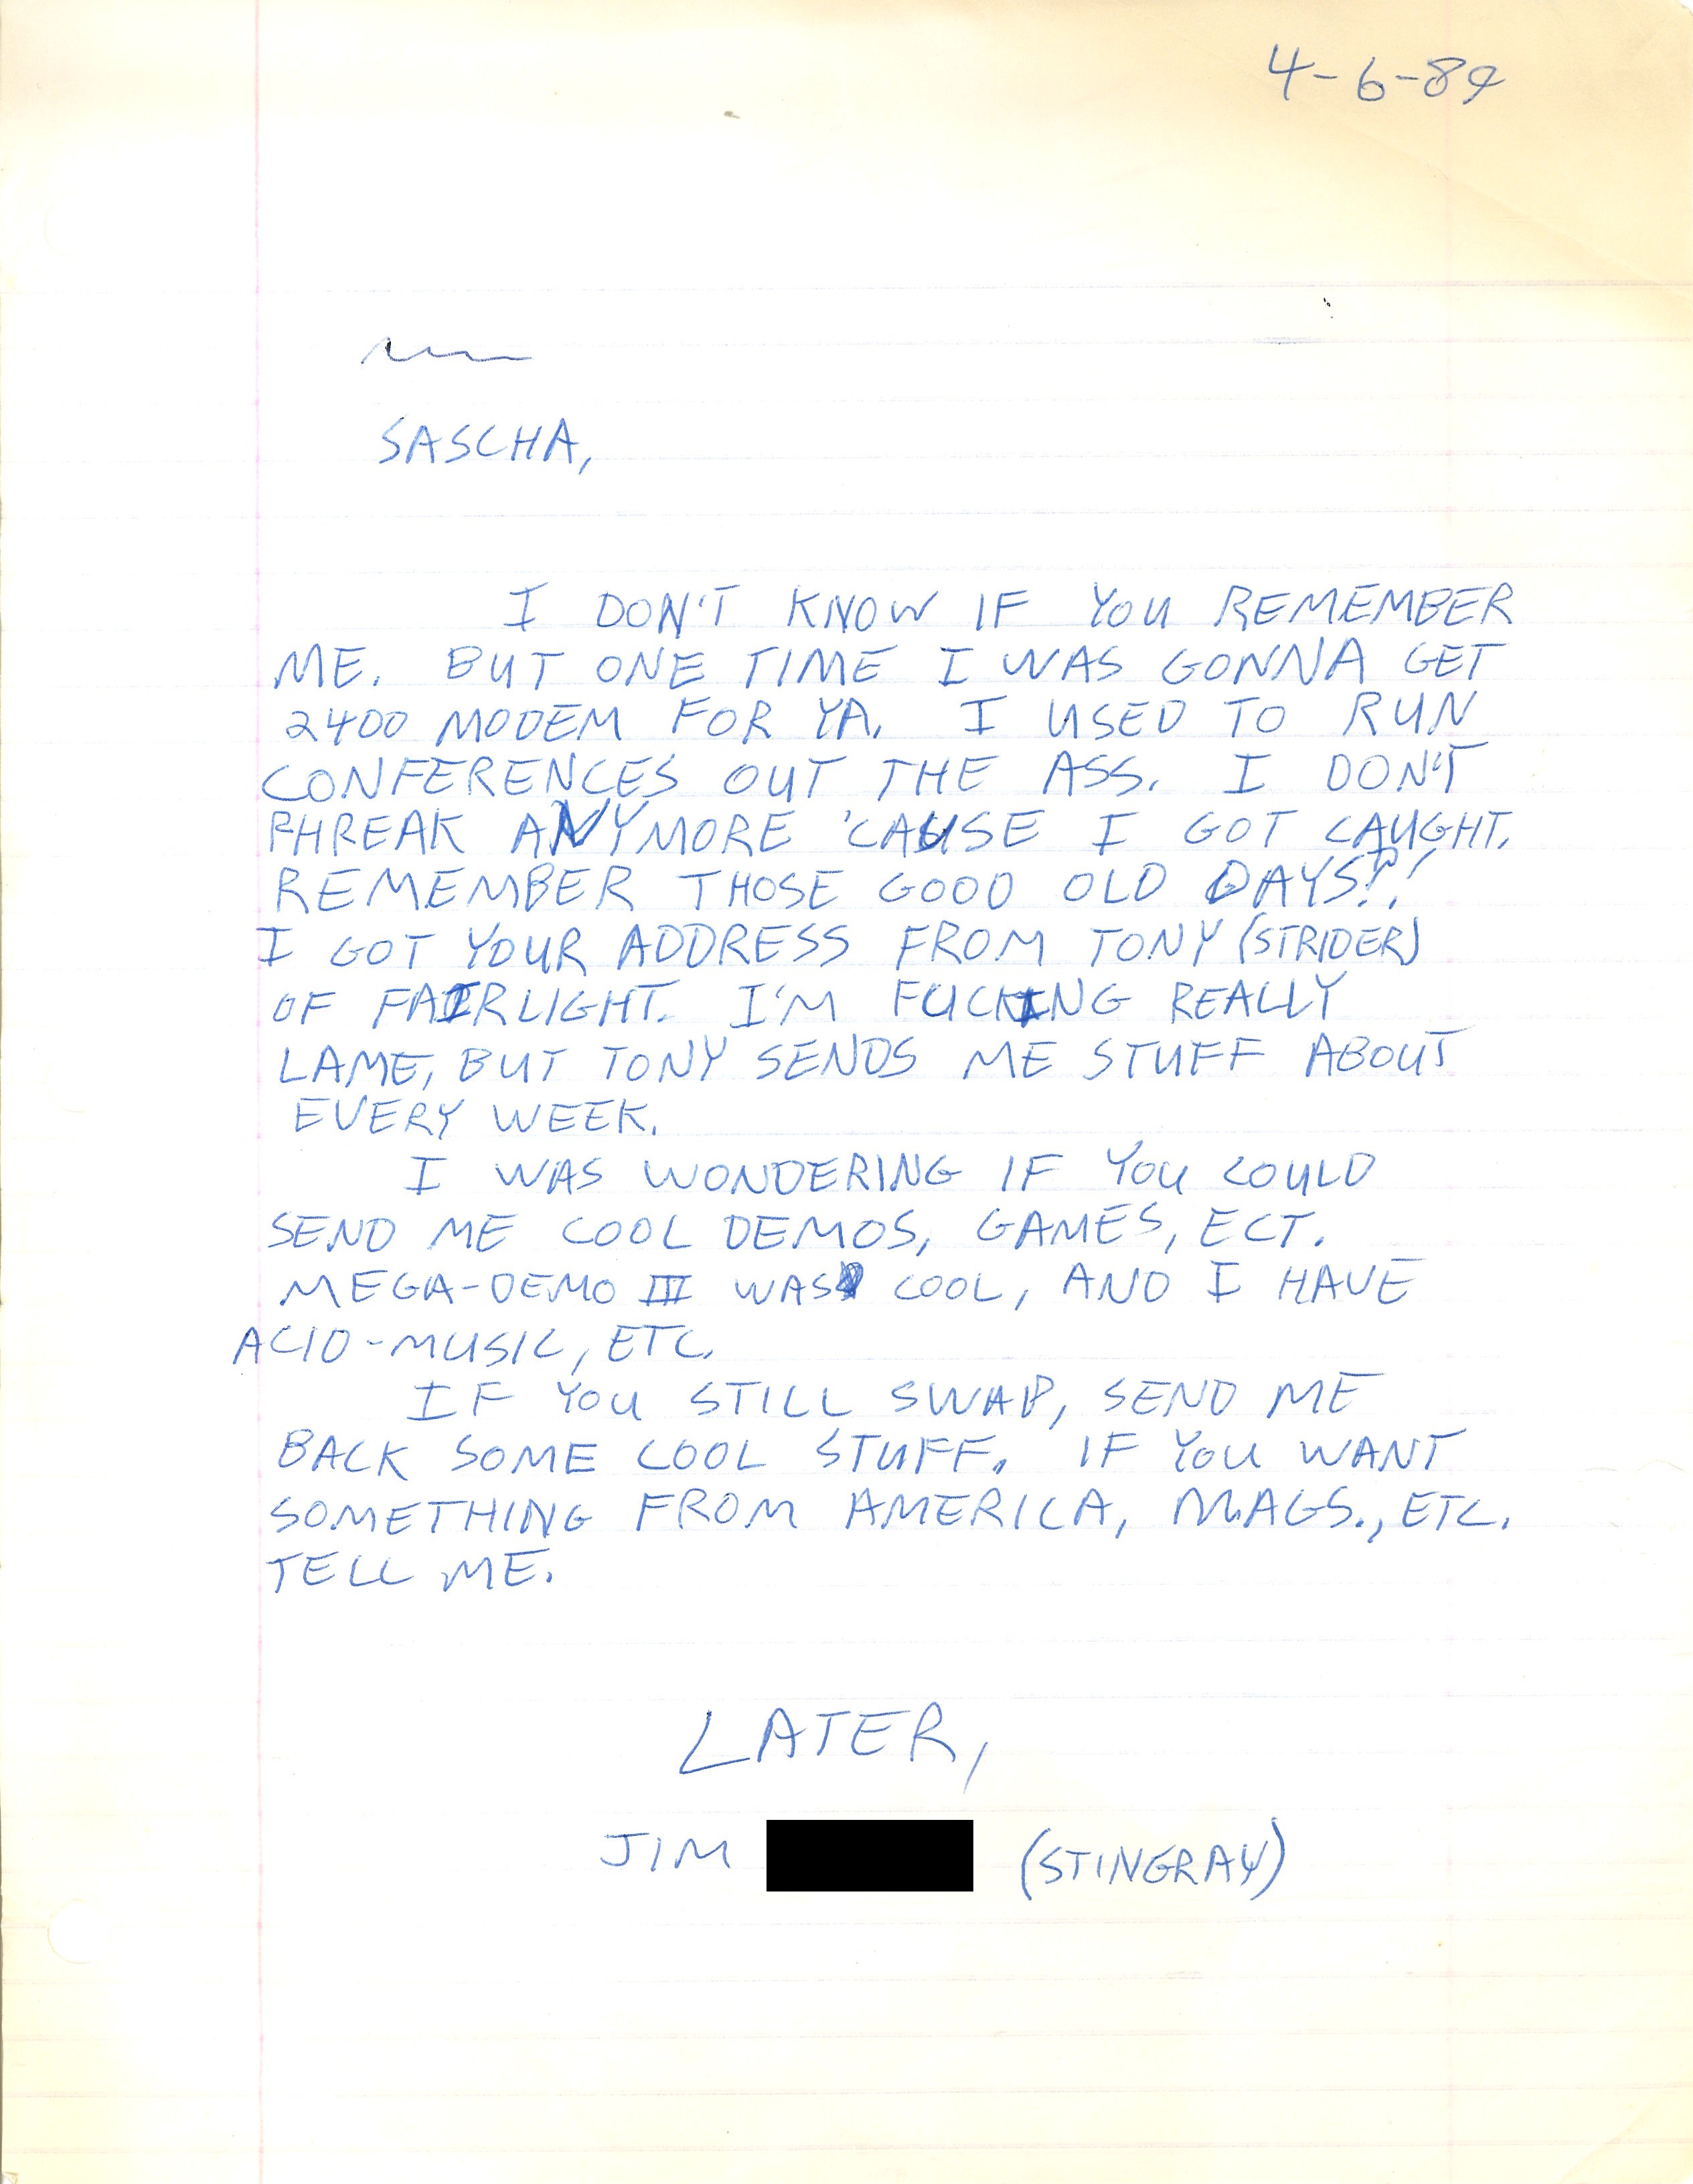 4-6-89
SASCHA,
I DON'T KNOW IF YOU REMEMBER
ME. BUT ONE TIME I WAS GONNA GET
2400 MODEM FOR YA. I USED TO RUN
CONFERENCES OUT THE ASS. I DON'T
PHREAK ANYMORE 'CAUSE I GOT CAUGHT.
REMEMBER THOSE GOOD OLD DAYS?!
I GOT YOUR ADDRESS FROM TONY (STRIDER)
OF FAIRLIGHT. I'M FUCKING REALLY
LAME, BUT TONY SENDS ME STUFF ABOUT
EVERY WEEK.
I WAS WONDERING IF YOU COULD
SEND ME COOL DEMOS, GAMES, ECT.
MEGA-DEMO III WAS COOL, AND I HAVE
ACID-MUSIC, ETC.
IF YOU STILL SWAP, SEND ME
BACK SOME COOL STUFF. IF YOU WANT
SOMETHING FROM AMERICA, MAGS., ETC.
TELL ME.
LATER,
JIM (STINGRAY)